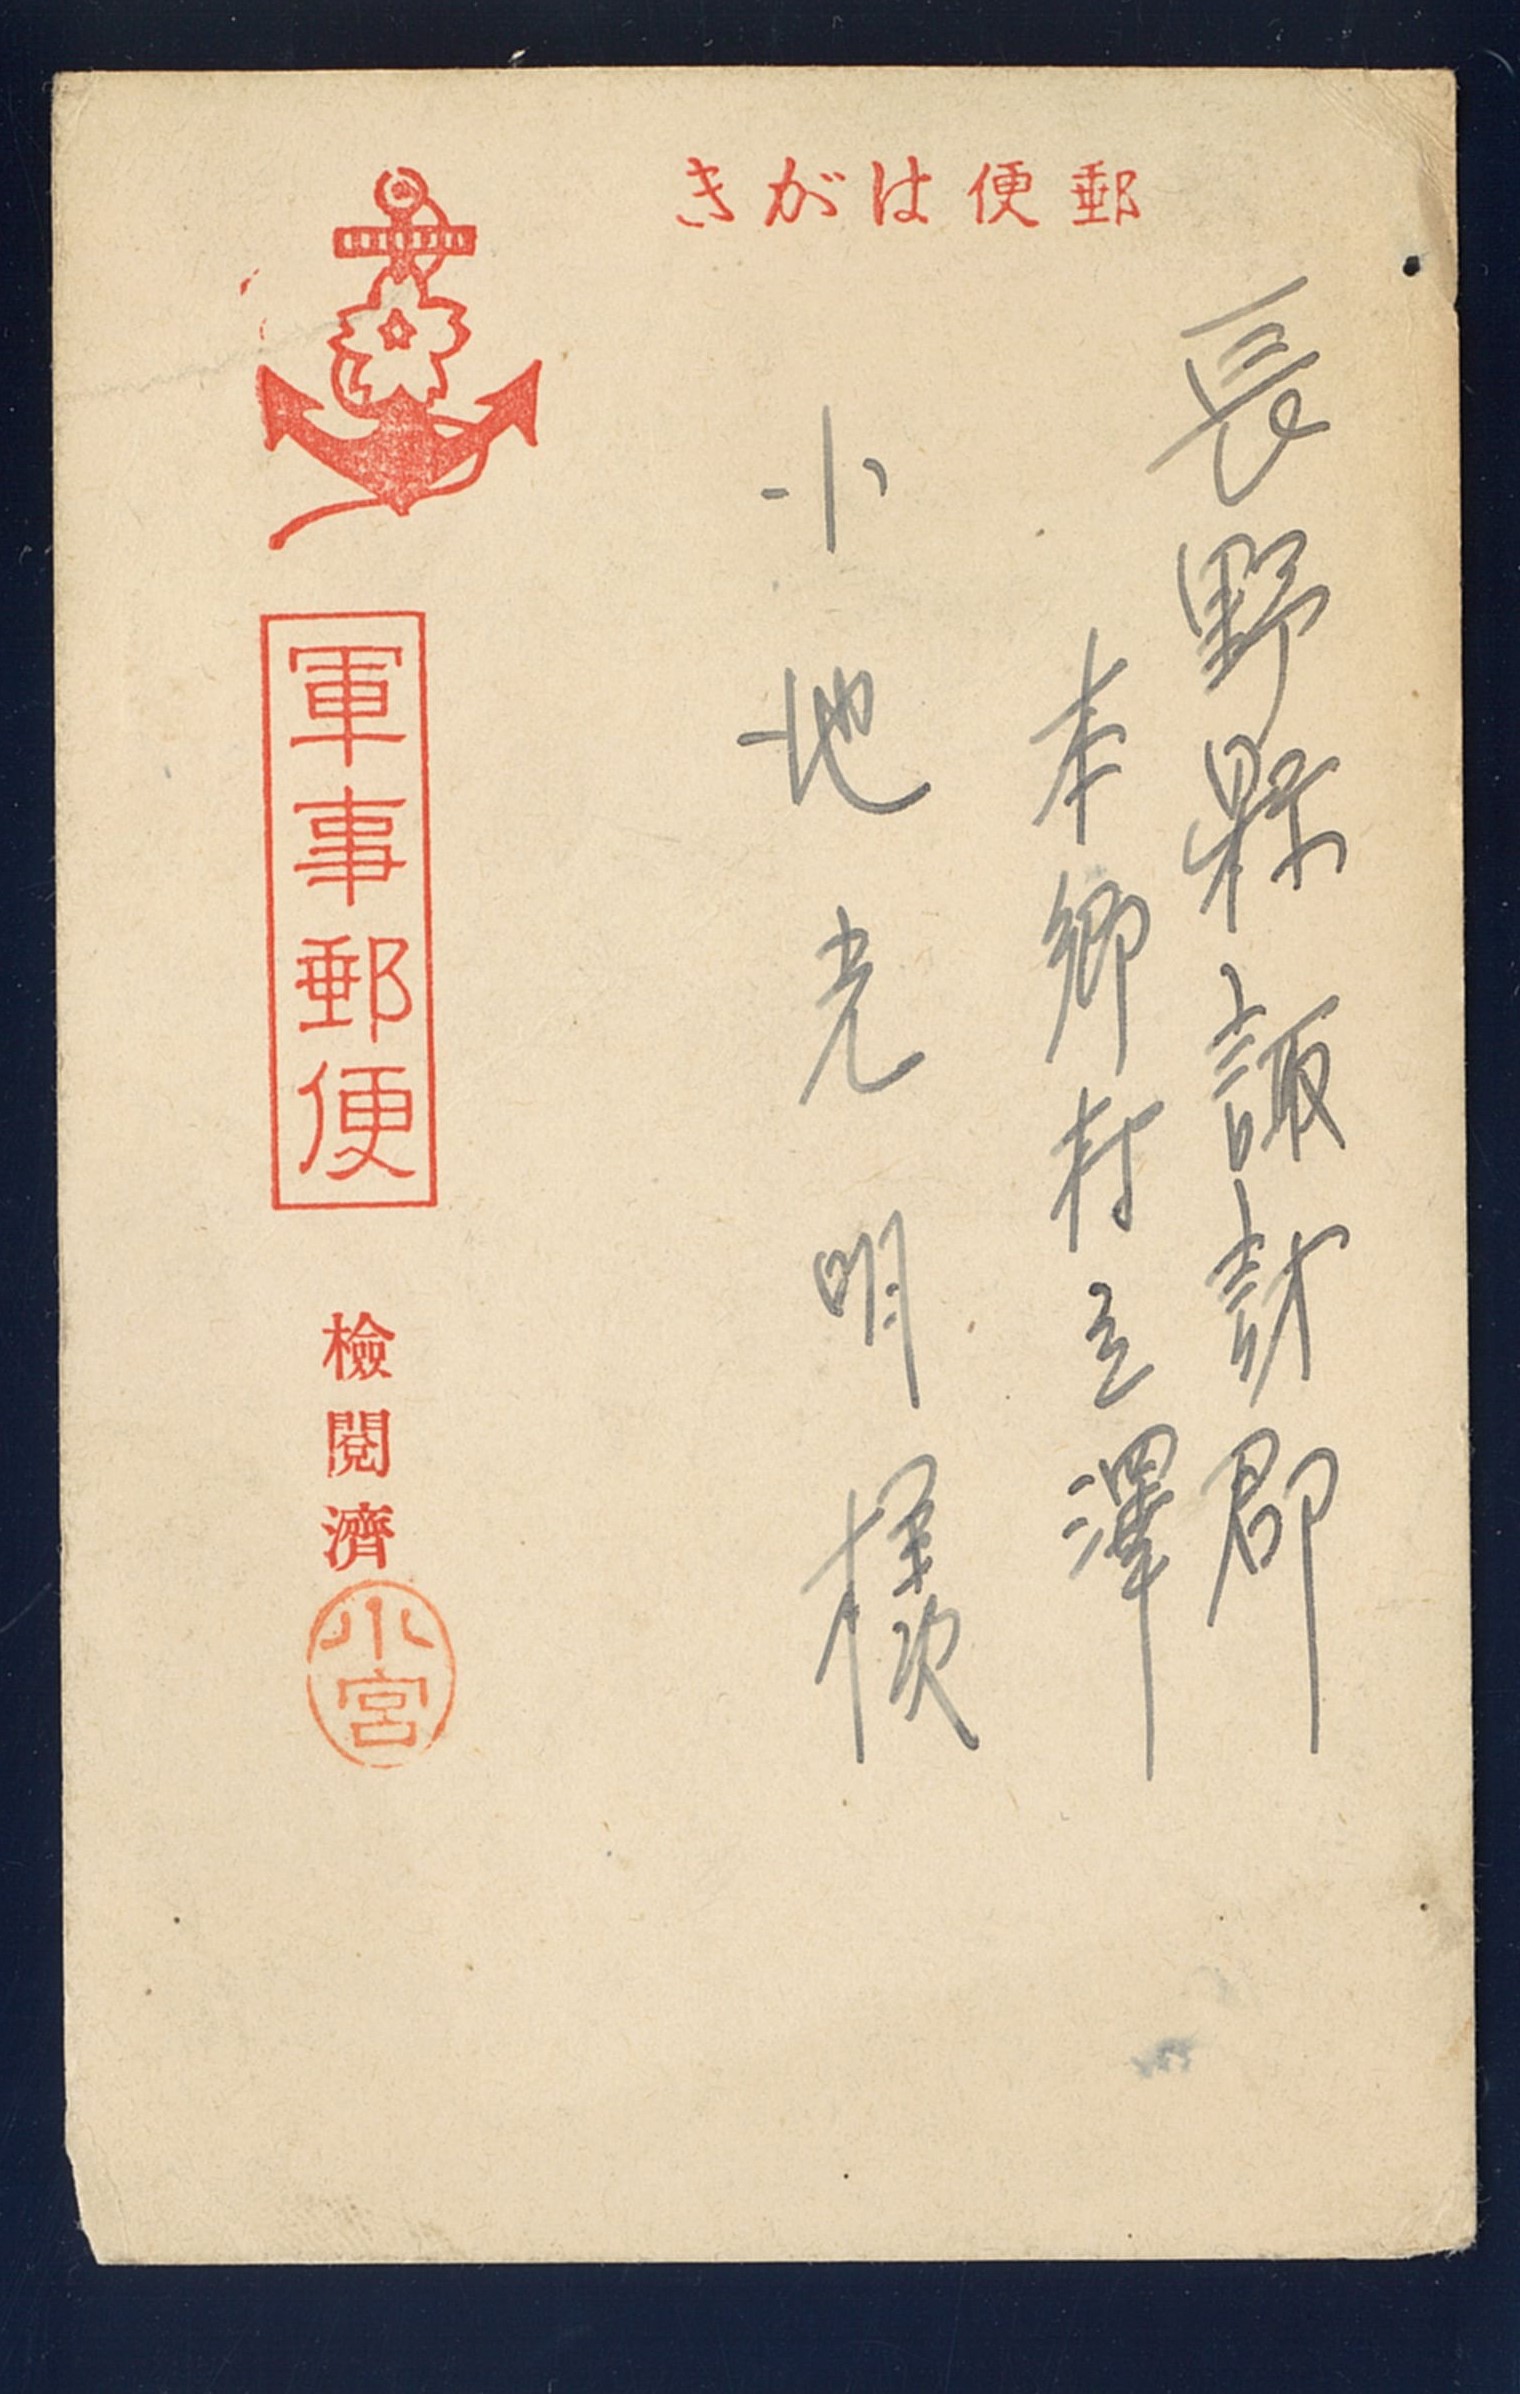 郵便はがき
長野縣諏訪郡
本郷村立澤
小池光明様
軍事郵便
檢閲濟
小宮